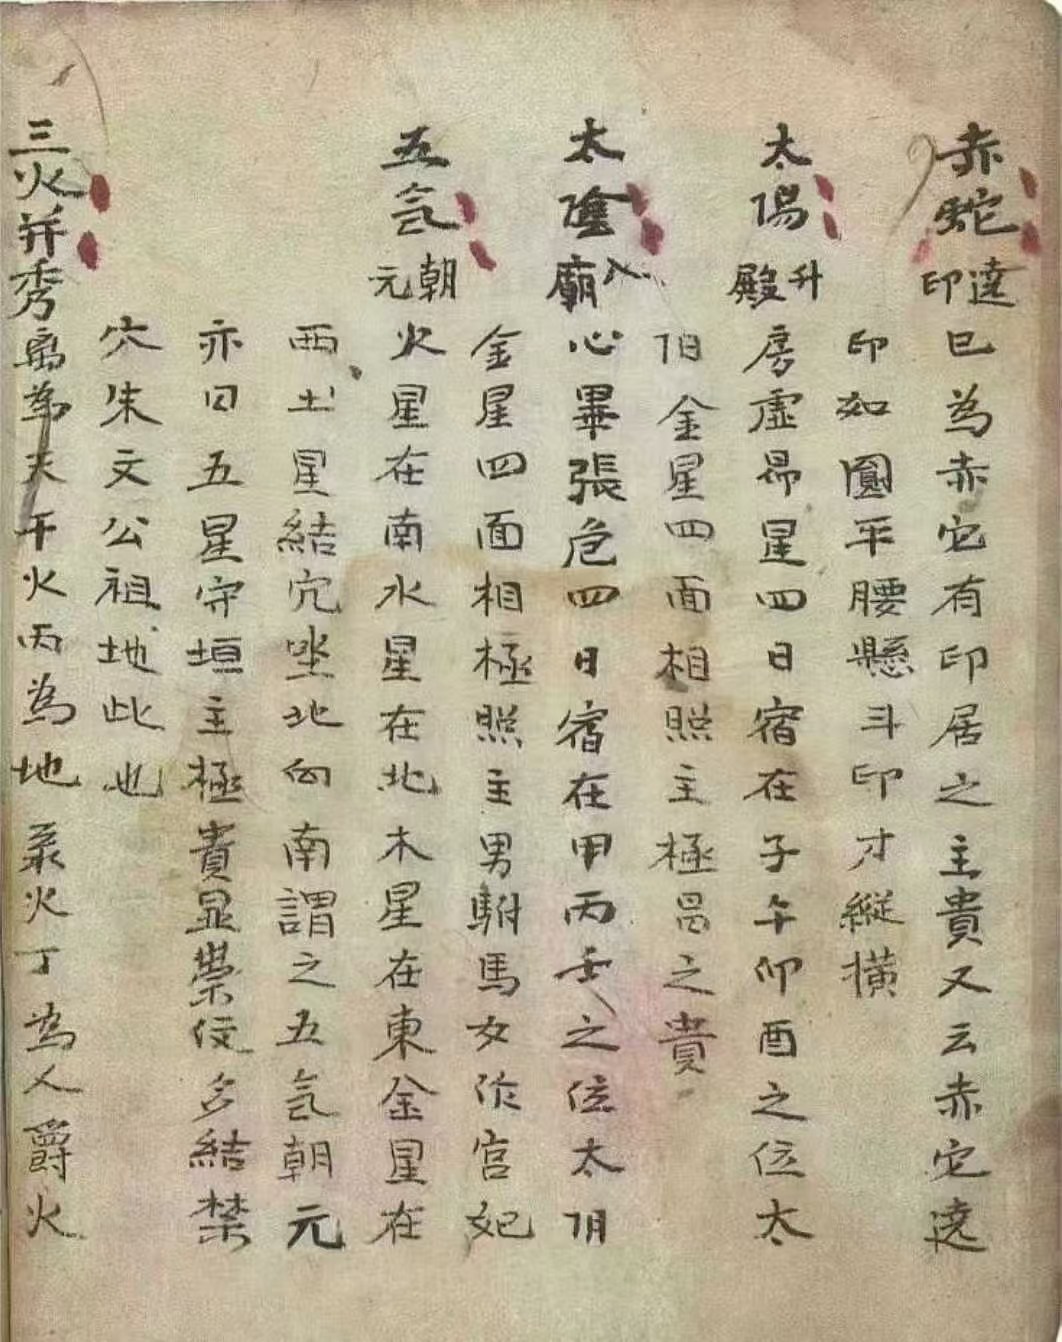 赤蛇遶印巳為赤它有印居之主貴又云赤它遶
印如圓平腰懸斗印才縱橫
太陽升殿房虛昴星四日宿在子午卯酉之位太
阳金星四面相照主極品之貴
太陰入廟心畢張危四日宿在甲丙壬之位太阴
金星四面相極照主男駙馬女作宮妃
五氣朝元火星在南水星在北木星在東金星在
西土星結穴坐北向南謂之五氣朝元
亦曰五星守垣主極貴显崇位多結禁
穴朱文公祖地此也
三火并秀离為天干火丙為地录火丁為人爵火